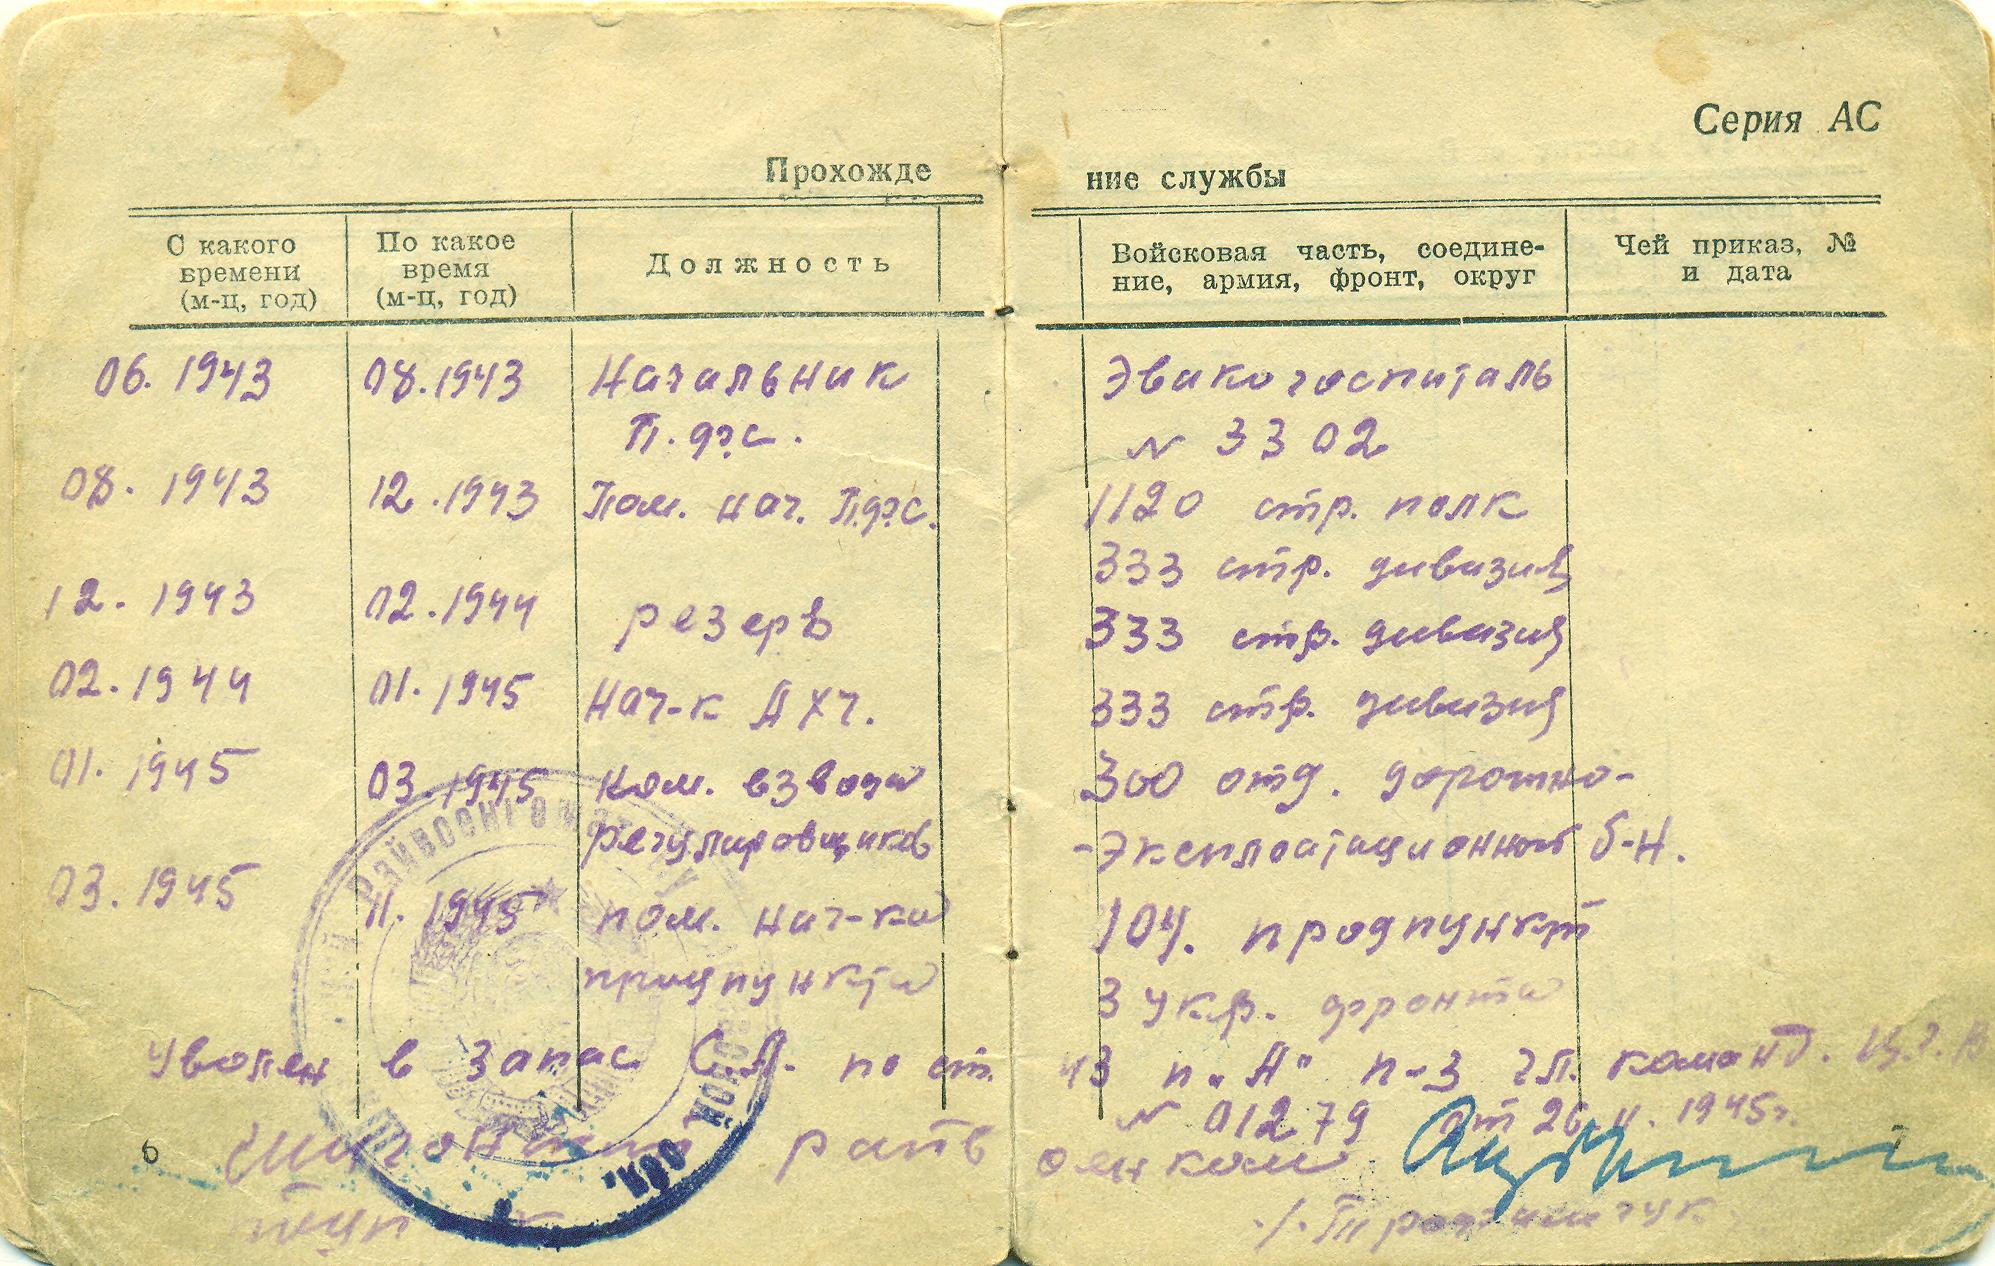 Серия АС
Прохождение службы
С какого времени (м-ц, год) По какое время (м-ц, год) Должность Войсковая часть, соедине-
ние, армия, фронт, округ Чей приказ, № и дата
06.1943 08.1943 Начальник Эвакогоспиталь
П.ф.с. № 3302
08.1943 12.1943 Пом. нач. П.ф.с. 1120 стр. полк
333 стр. дивизия
12.1943 02.1944 резерв 333 стр. дивизия
02.1944 01.1945 Нач-к АХЧ. 333 стр. дивизия
01.1945 03.1945 Ком. взвода 300 отд. дорожно-
регулировщиков -эксплоатационной б-н.
03.1945 11.1945 пом. нач-ка 104. продпункт
продпункта 3 Укр. фронта
Уволен в запас С.А. по ст. 43 п. "А" п-з гл. команд.
№ 01279 от 26.11.1945г.
райвоенком
6
РАЙВОЕНКОМАТ
ОБЛ.